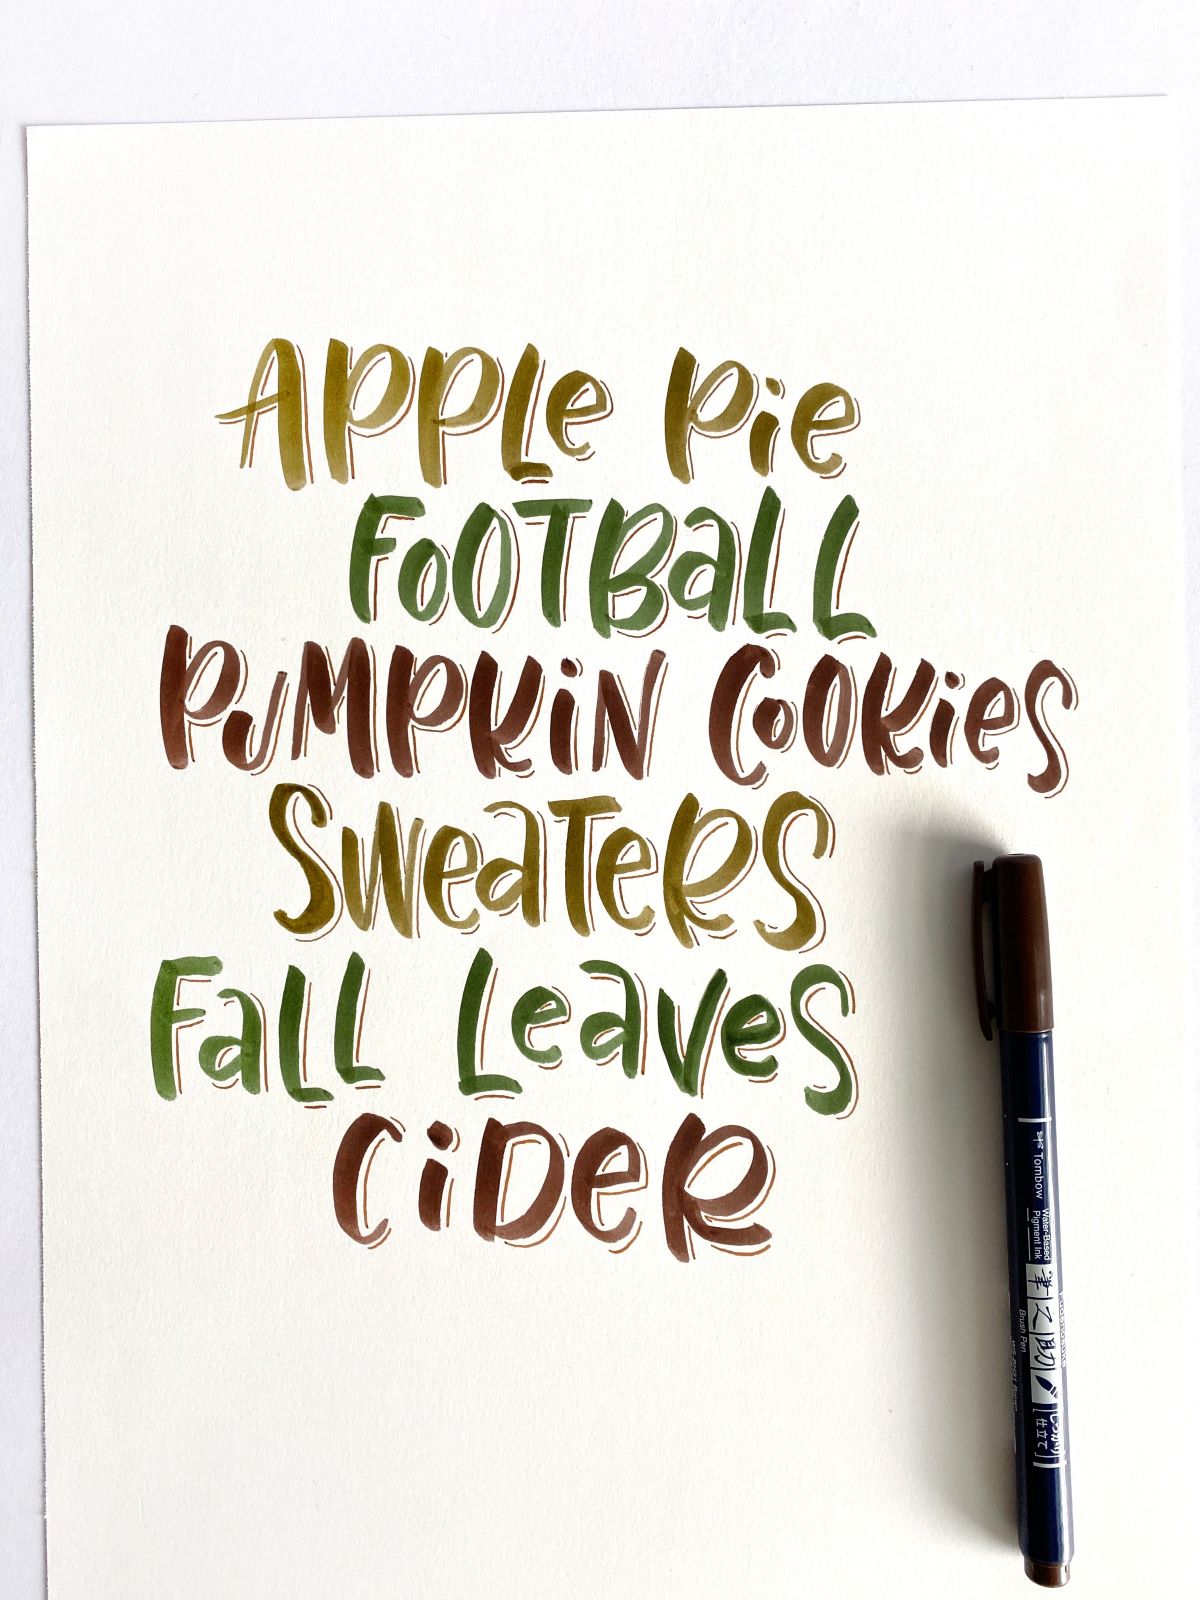 Apple Pie
Football
Pumpkin Cookies
Sweaters
Fall Leaves
Cider
Tombow
Water-Based
Pigment Ink
筆之助
Brush Pen
しっかり
仕立て